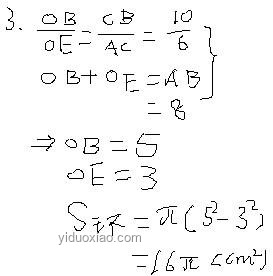 3. OB/OE = CB/AC = 10/6
OB + OE = AB
= 8
⇒ OB = 5
OE = 3
S环 = π(5² - 3²)
= 16π (cm²)
yiduoxiao.com